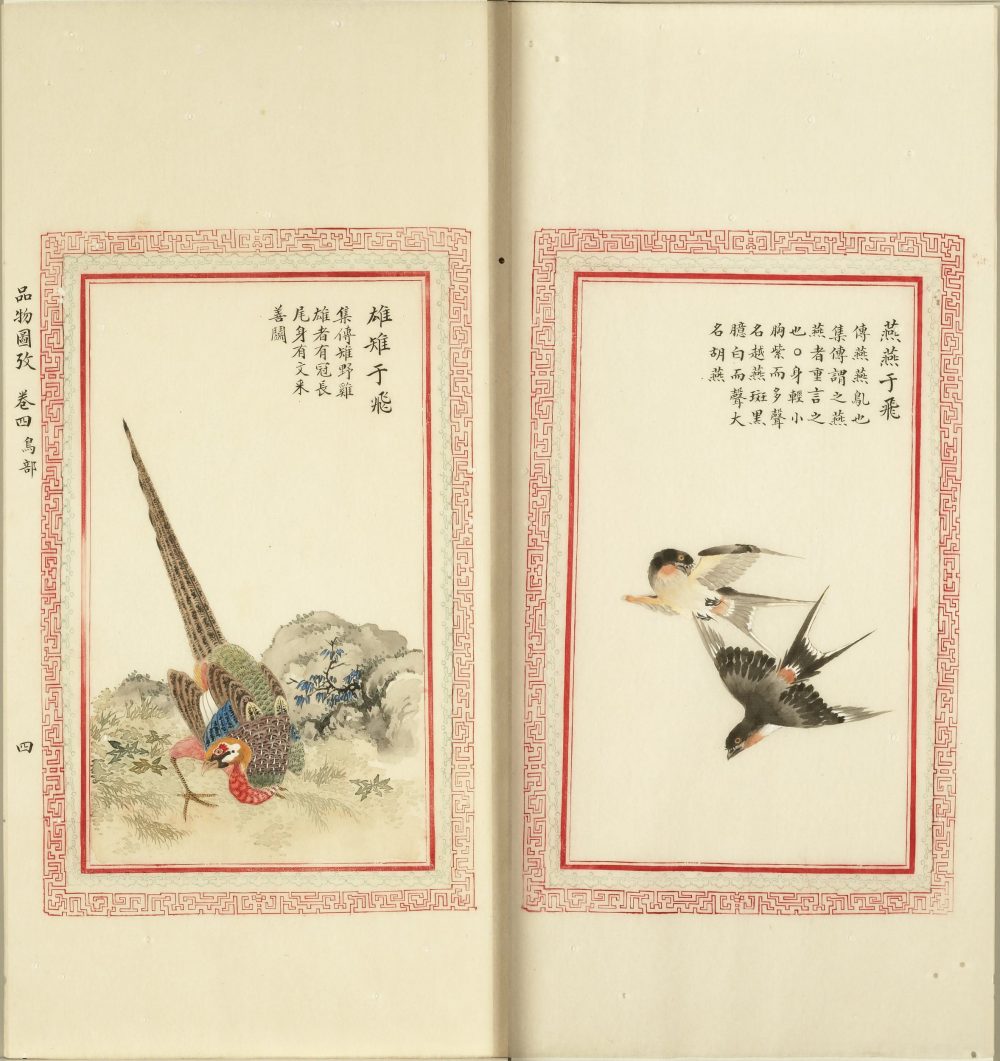 燕燕于飛
傳燕燕鳦也
集傳謂之燕
燕者重言之
也○身輕小
胸紫而多聲
名越燕斑黑
臆白而聲大
名胡燕
雄雉于飛
集傳雉野雞
雄者有冠長
尾身有文采
善鬭
品物圖攷 卷四 鳥部
四